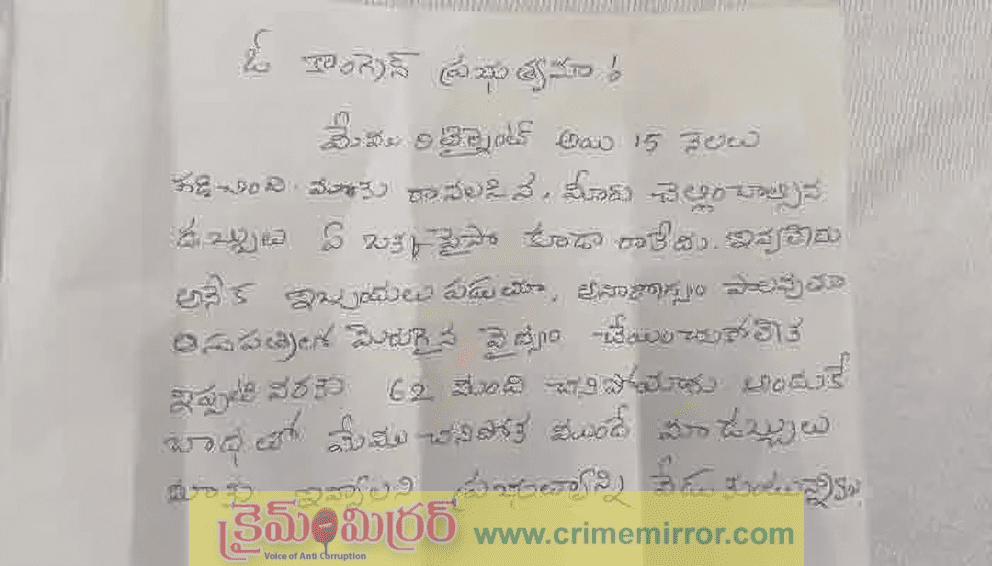 ఓ కాంగ్రెస్ ప్రభుత్వమా!
మేము రిటైర్మెంట్ అయి 15 నెలలు
గడిచింది. మాకు రావలసిన, మీరు చెల్లించాల్సిన
డబ్బులు ఏ ఒక్క పైసా కూడా రాలేదు. ఇవ్వలేదు
అనేక ఇబ్బందులు పడుతూ, అనారోగ్యం పాలవుతూ
ఆసుపత్రిలో మెరుగైన వైద్యం చేయించుకోలేక
ఇప్పటి వరకు 62 మంది చనిపోయారు అందుకే
బాధతో మేము చనిపోక ముందే మా డబ్బులు
మాకు ఇవ్వాలని ప్రభుత్వాన్ని వేడుకుంటున్నాము.
క్రైమ్ మిర్రర్
Voice of Anti Corruption
www.crimemirror.com